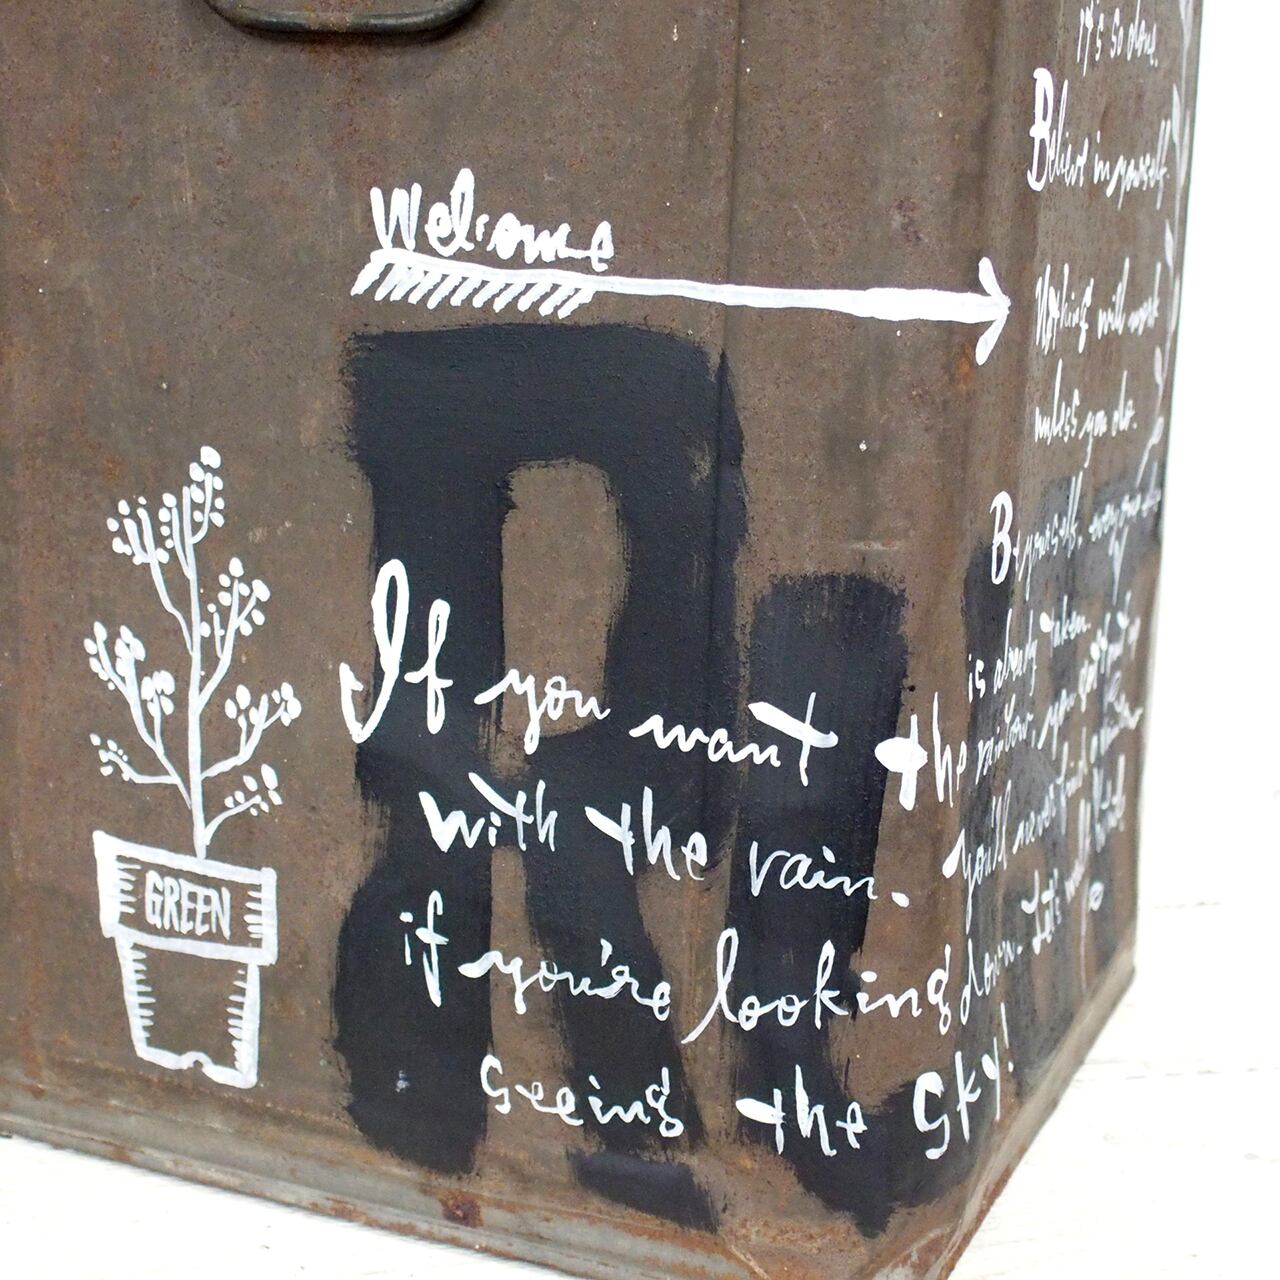 Welcome
GREEN
If you want the rainbow, you got put up
with the rain. You'll never find a rainbow
if you're looking down. Let's walk
seeing the sky!
it's so done.
Believe in yourself.
Nothing will work
unless you do.
Be yourself, everyone
is already taken.